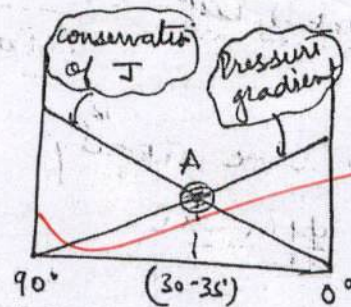 Conservatio
of J
Pressure
gradien
A
90°
(30-35)
0°